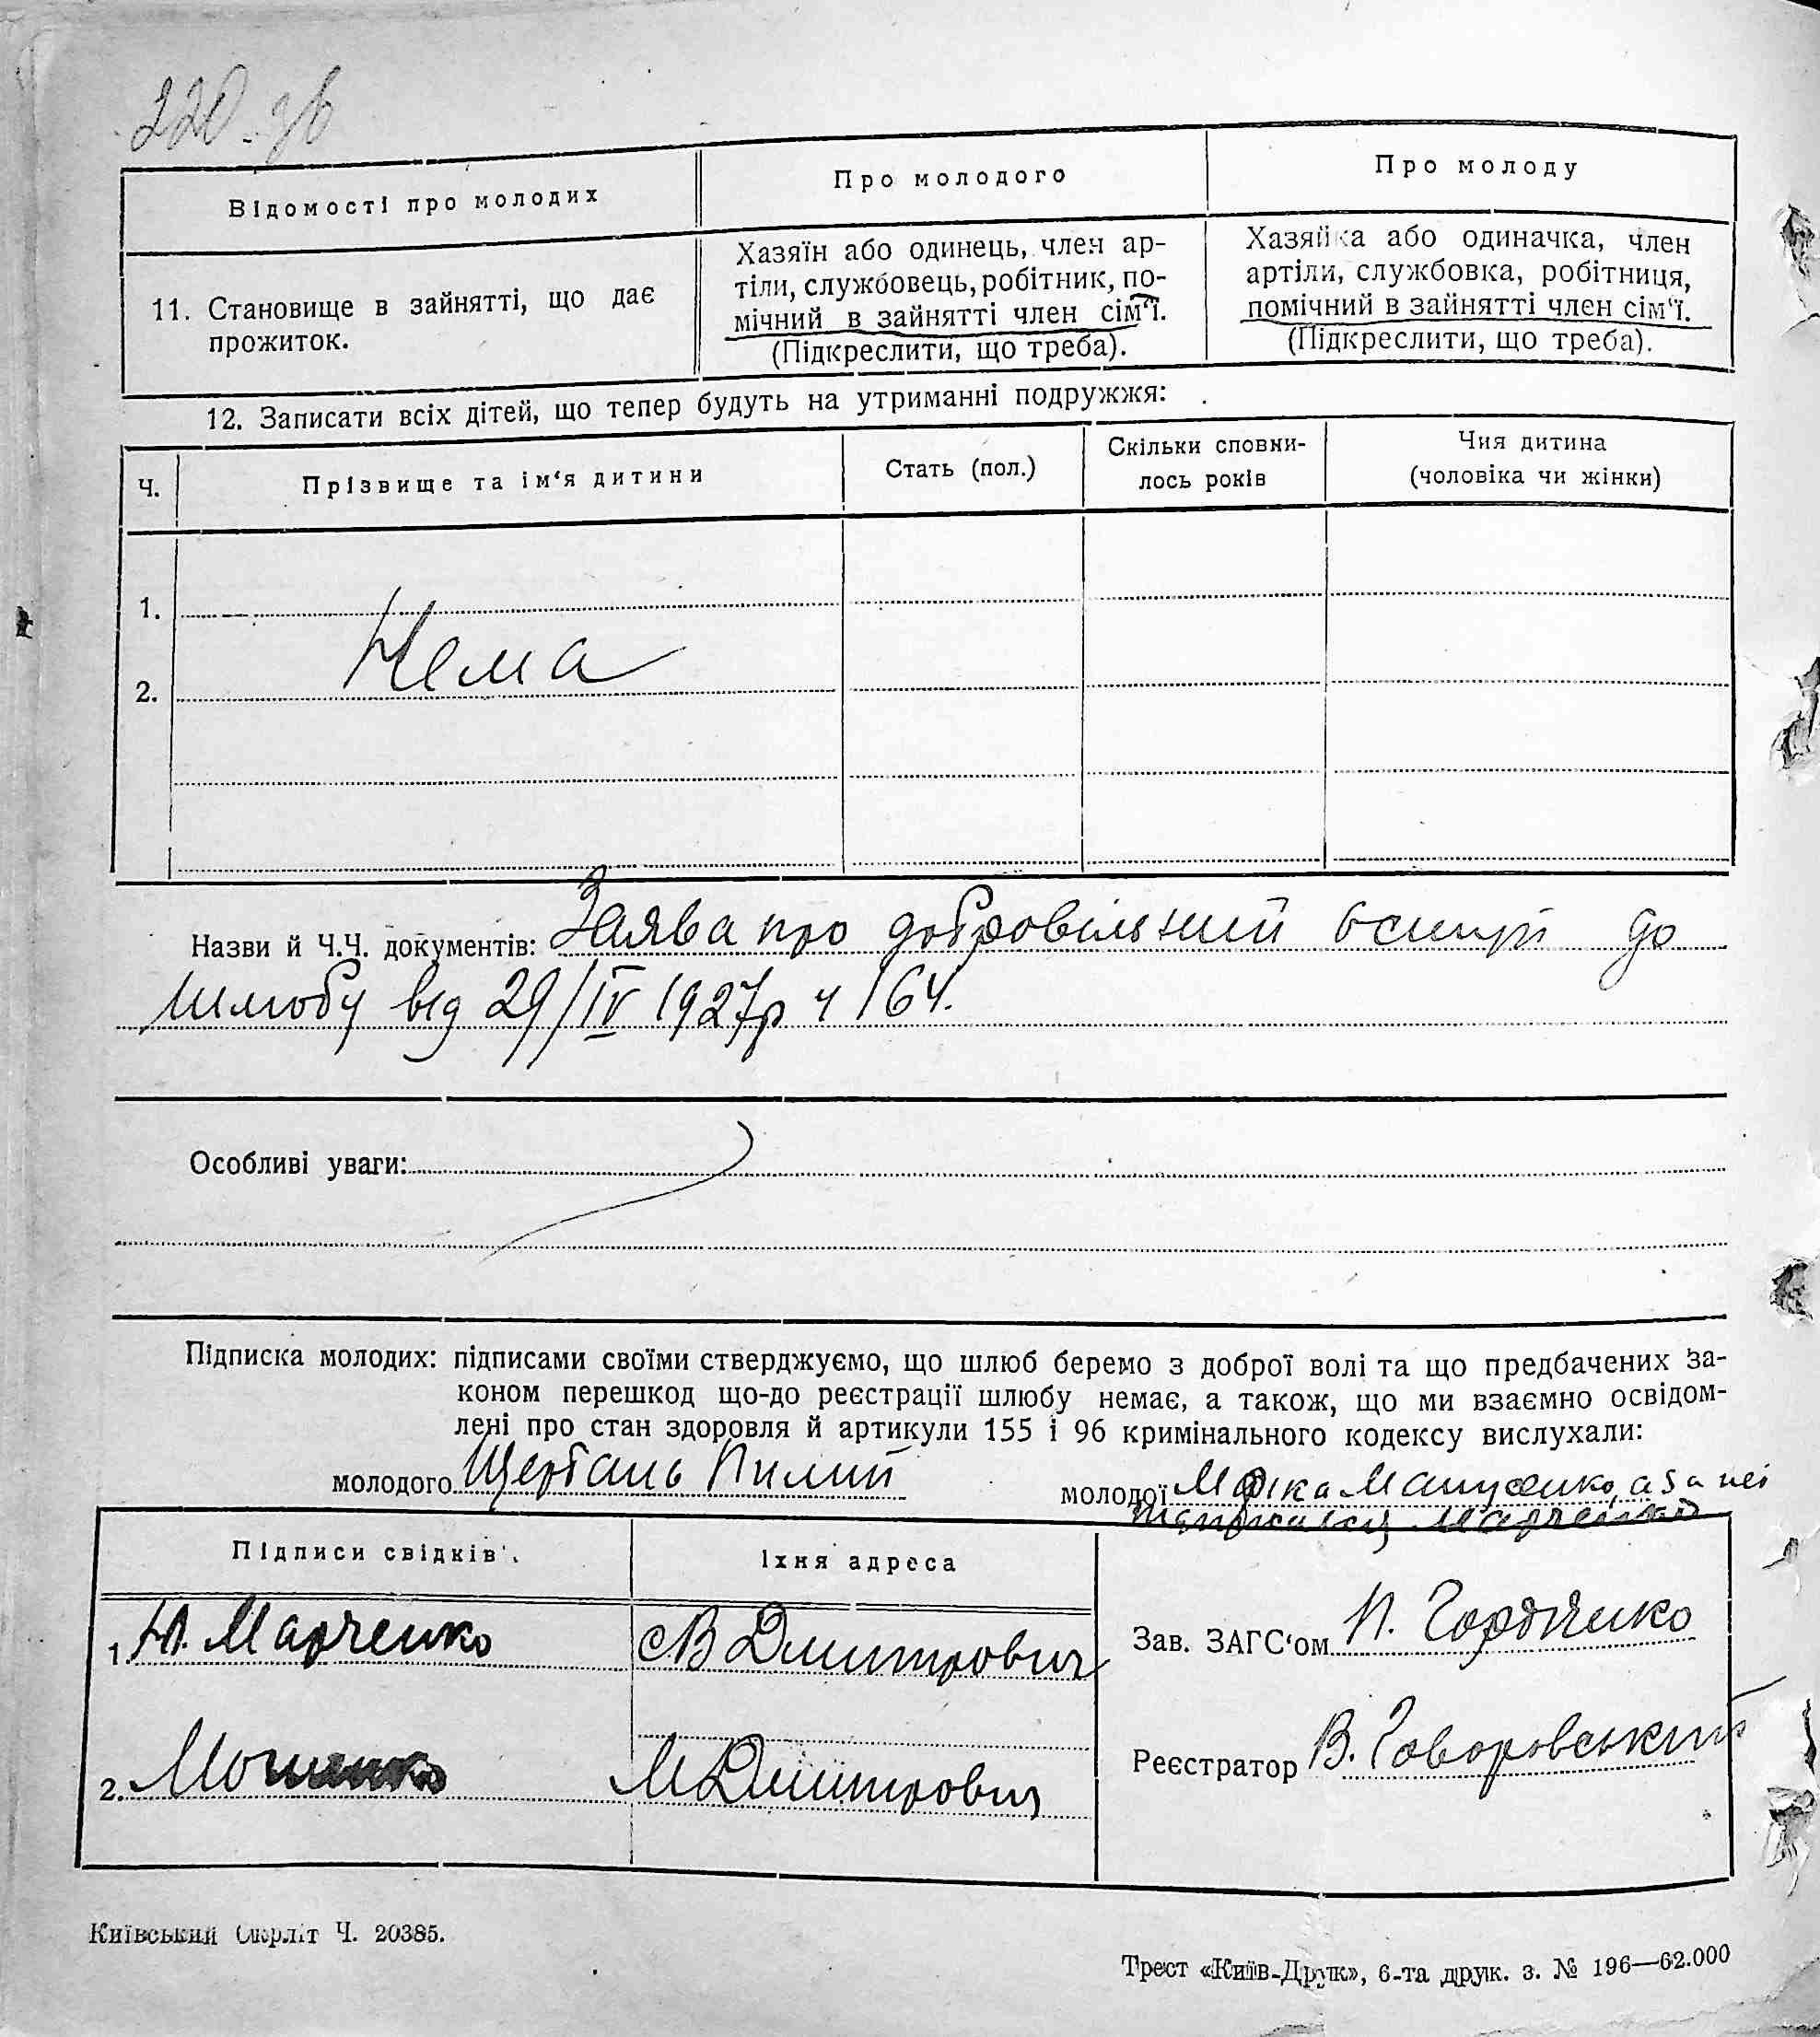 220 зв
Відомості про молодих
Про молодого
Про молоду
11. Становище в зайнятті, що дає
прожиток.
Хазяїн або одинець, член ар-
тіли, службовець, робітник, по-
мічний в зайнятті член сім'ї.
(Підкреслити, що треба).
Хазяйка або одиначка, член
артіли, службовка, робітниця,
помічний в зайнятті член сім'ї.
(Підкреслити, що треба).
12. Записати всіх дітей, що тепер будуть на утриманні подружжя:
Ч.
Прізвище та ім'я дитини
Стать (пол.)
Скільки сповни-
лось років
Чия дитина
(чоловіка чи жінки)
1.
Нема
2.
Назви й Ч.Ч. документів: Заява про добровільний вступ до
шлюбу від 29/IV 1927р ч 164.
Особливі уваги:
Підписка молодих: підписами своїми стверджуємо, що шлюб беремо з доброї волі та що предбачених за-
коном перешкод що-до реєстрації шлюбу немає, а також, що ми взаємно освідом-
лені про стан здоровля й артикули 155 і 96 кримінального кодексу вислухали:
молодого Щербань Пилип
молодої а за неї
Марченко
Підписи свідків
Їхня адреса
1. Марченко
с В Дмитрович
2.
М Дмитрович
Зав. ЗАГС'ом П. Гордієнко
Реєстратор В. Говоровський
Київський Окрліт Ч. 20385.
Трест «Київ-Друк», 6-та друк. з. № 196—62.000